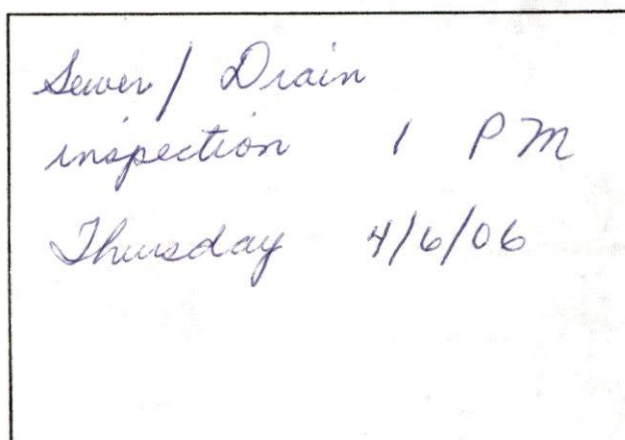 Sewer / Drain
inspection 1 PM
Thursday 4/6/06